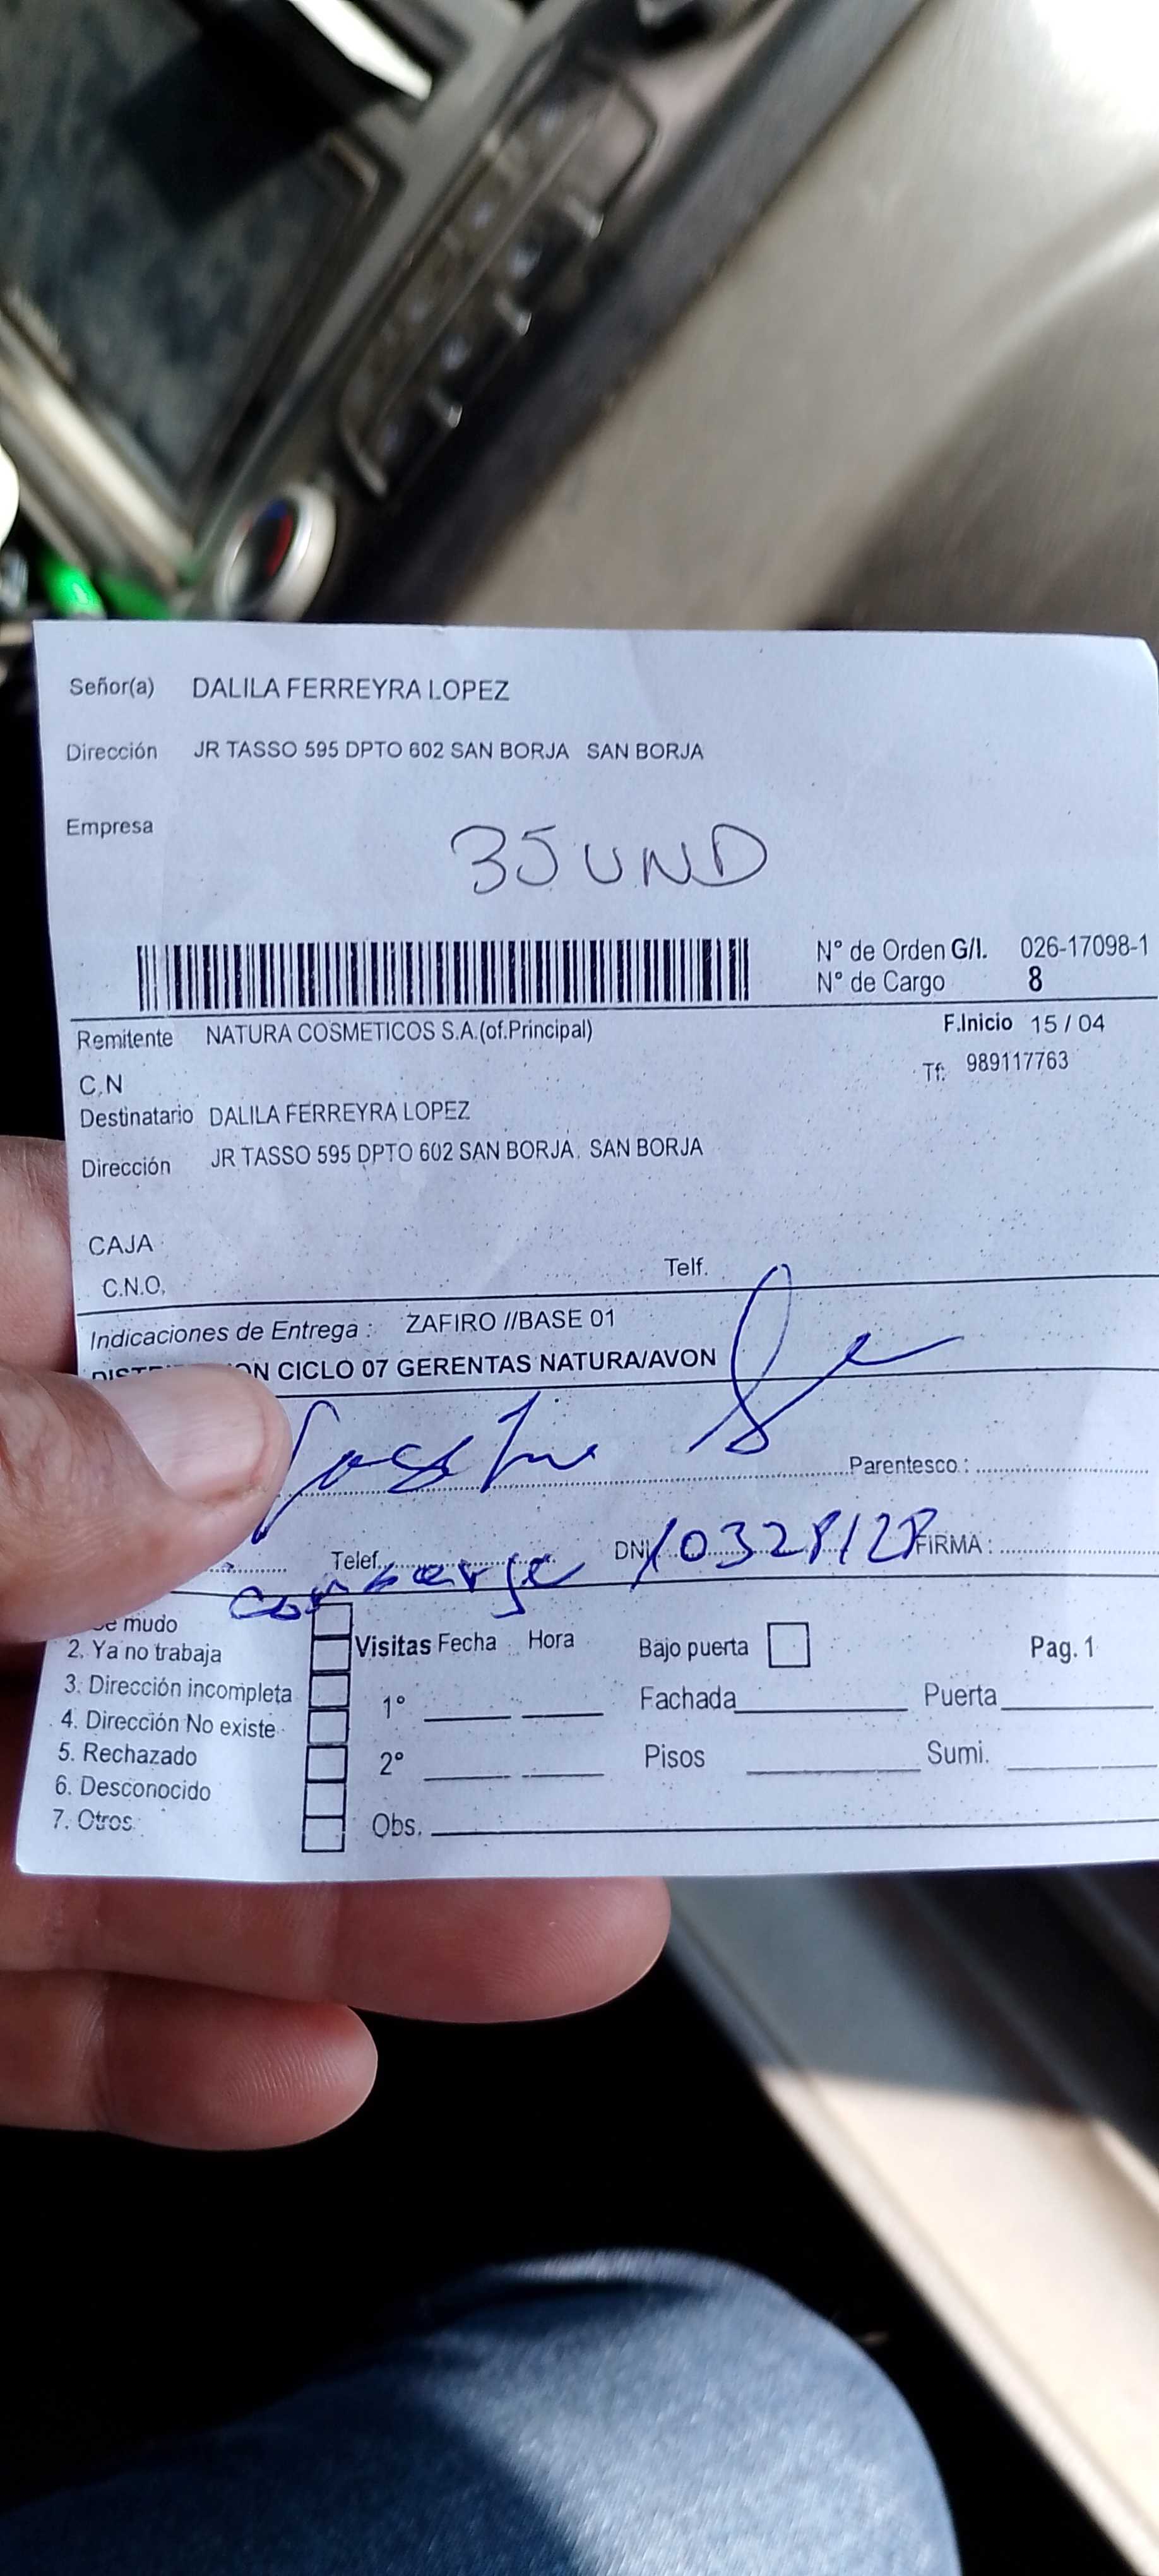 Señor(a) DALILA FERREYRA LOPEZ
Dirección JR TASSO 595 DPTO 602 SAN BORJA SAN BORJA
Empresa
35 UND
N° de Orden G/I. 026-17098-1
N° de Cargo 8
Remitente NATURA COSMETICOS S.A.(of.Principal)
F.Inicio 15 / 04
C.N
Tf: 989117763
Destinatario DALILA FERREYRA LOPEZ
Dirección JR TASSO 595 DPTO 602 SAN BORJA. SAN BORJA
CAJA
C.N.O.
Telf.
Indicaciones de Entrega : ZAFIRO //BASE 01
CICLO 07 GERENTAS NATURA/AVON
Parentesco :
Telef. DNI FIRMA :
mudo
2. Ya no trabaja
3. Dirección incompleta
4. Dirección No existe
5. Rechazado
6. Desconocido
7. Otros
Visitas Fecha Hora Bajo puerta Pag. 1
1° Fachada Puerta
2° Pisos Sumi.
Obs.